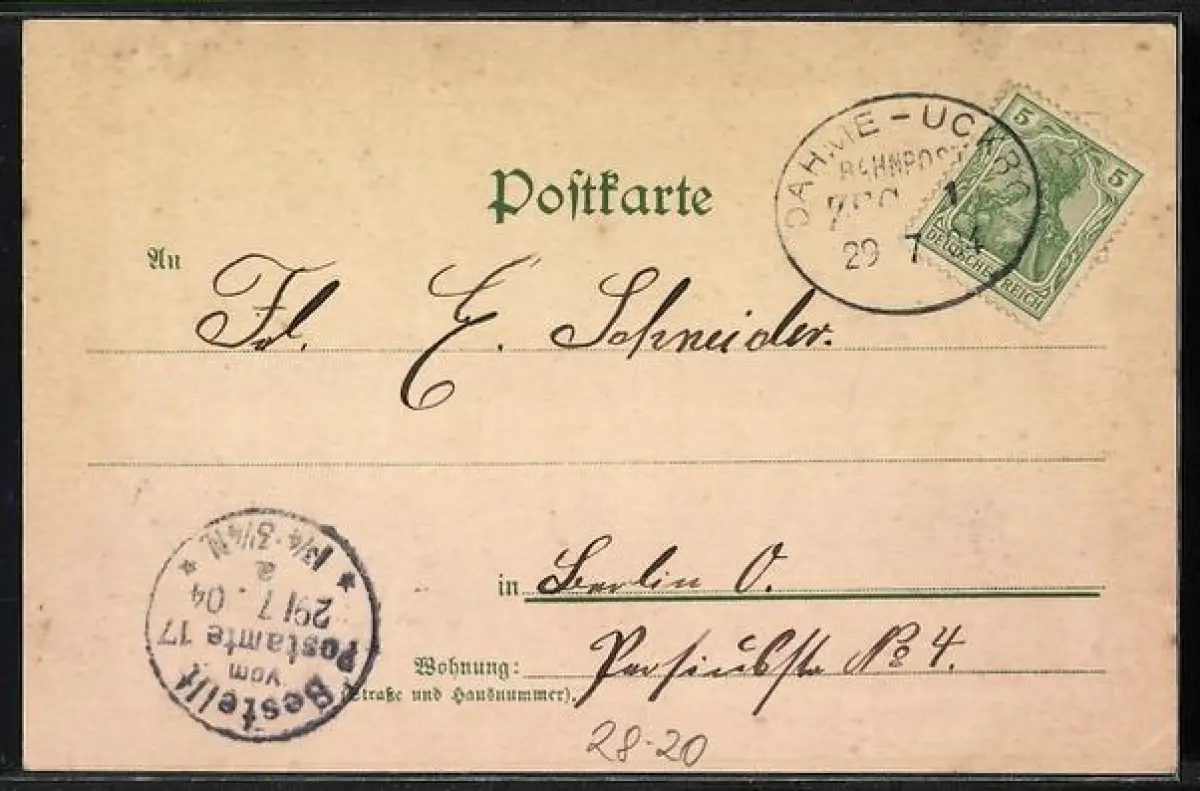 Postkarte
DAHME-UCKRO
BAHNPOST
ZUG 1
29 7
5
5
DEUTSCHES REICH
An
Frl. E. Schneider.
in Berlin O.
Wohnung: № 4.
(Straße und Hausnummer).
28-20
Bestellt
vom
Postamte 17
29/7.04
1¾-3¼N